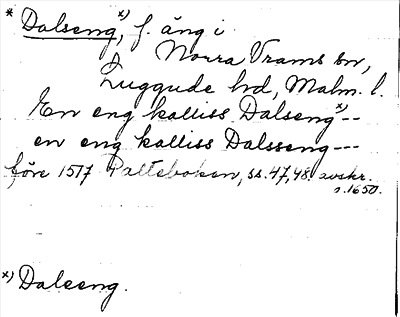 * Dalseng,x) f. äng i
Norra Vrams sn,
Luggude hd, Malm. l.
En eng kalliss Dalseng x)--
en eng kalliss Dalsseng---
före 1517 Palteboken, ss. 47, 48. avskr.
s. 1650.
x) Dalseng.